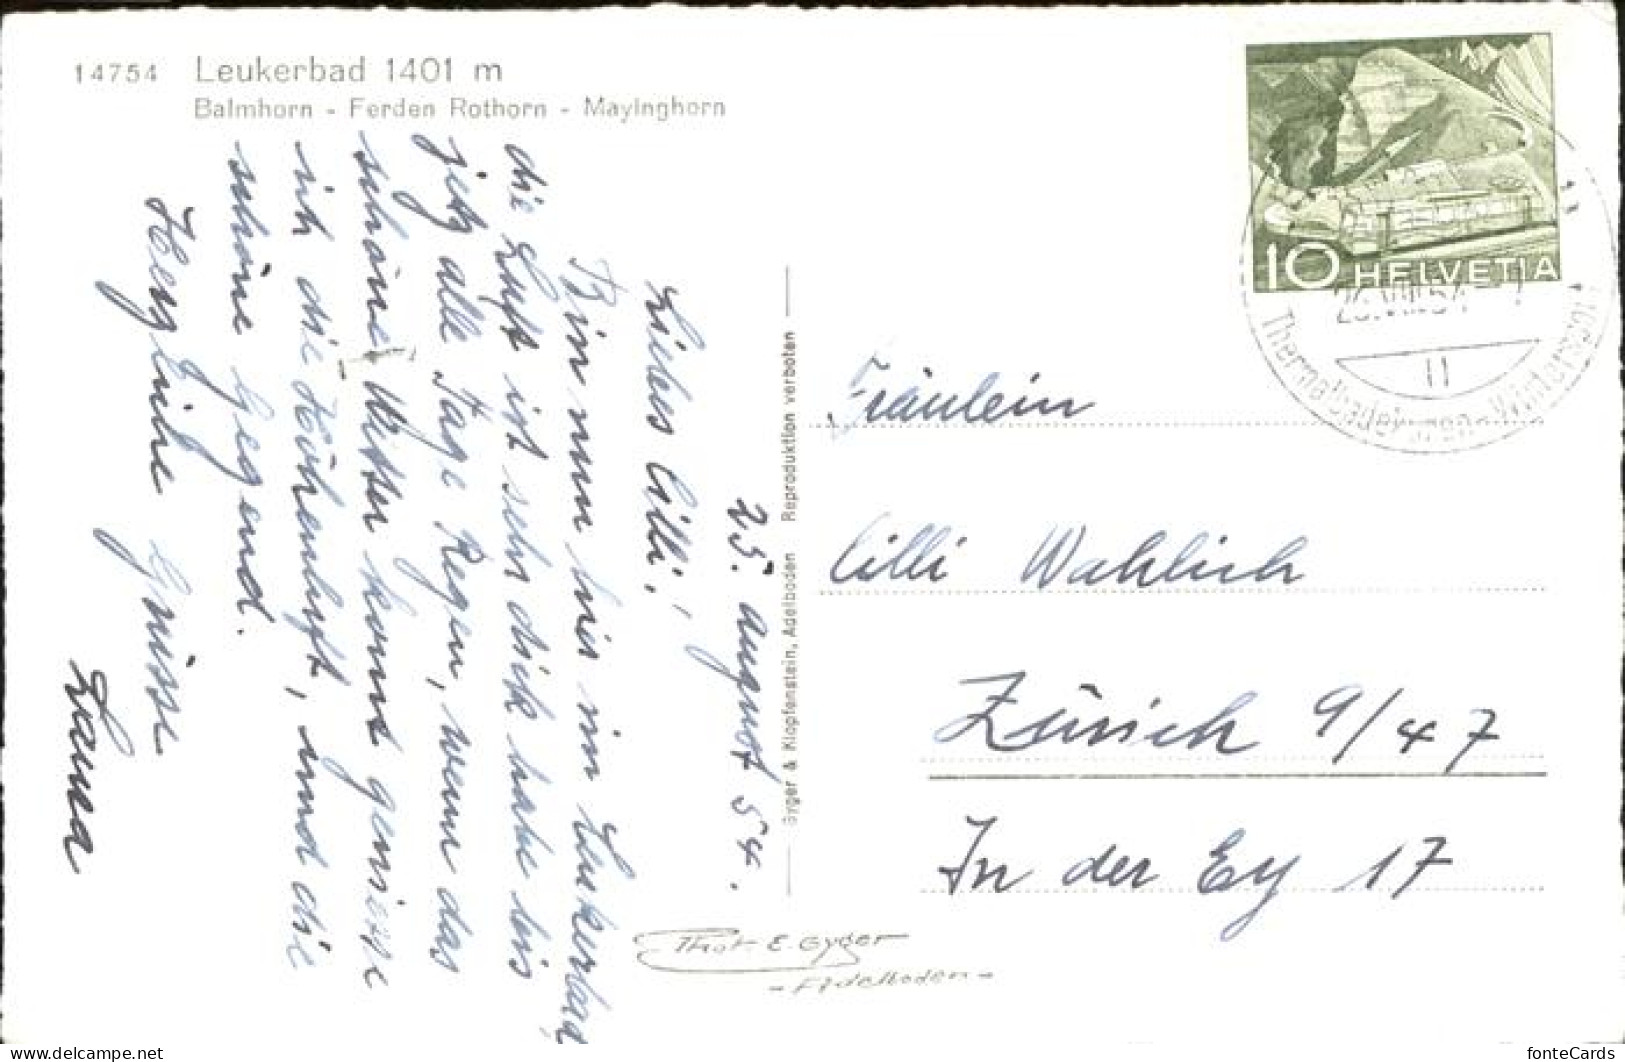 14754 Leukerbad 1401 m
Balmhorn - Ferden Rothorn - Mayinghorn
10 HELVETIA
26.VIII.54
Thermalbadekuren-Wintersport
25. august 54.
Liebes Cilli,
Bin nun hier in Leukerbad,
die Luft ist sehr dick habe bis
jetz alle Tage Regen, wenn das
schöne Wetter komt geniesse
ich die Höhenluft, und die
schöne Gegend.
Herzliche Grüsse
Gyger & Klopfenstein, Adelboden Reproduktion verboten
Fräulein
Cilli Wahlich
Zürich 9/47
In der Ey 17
Phot. E. Gyger
- Adelboden -
delcampe.net
fonteCards